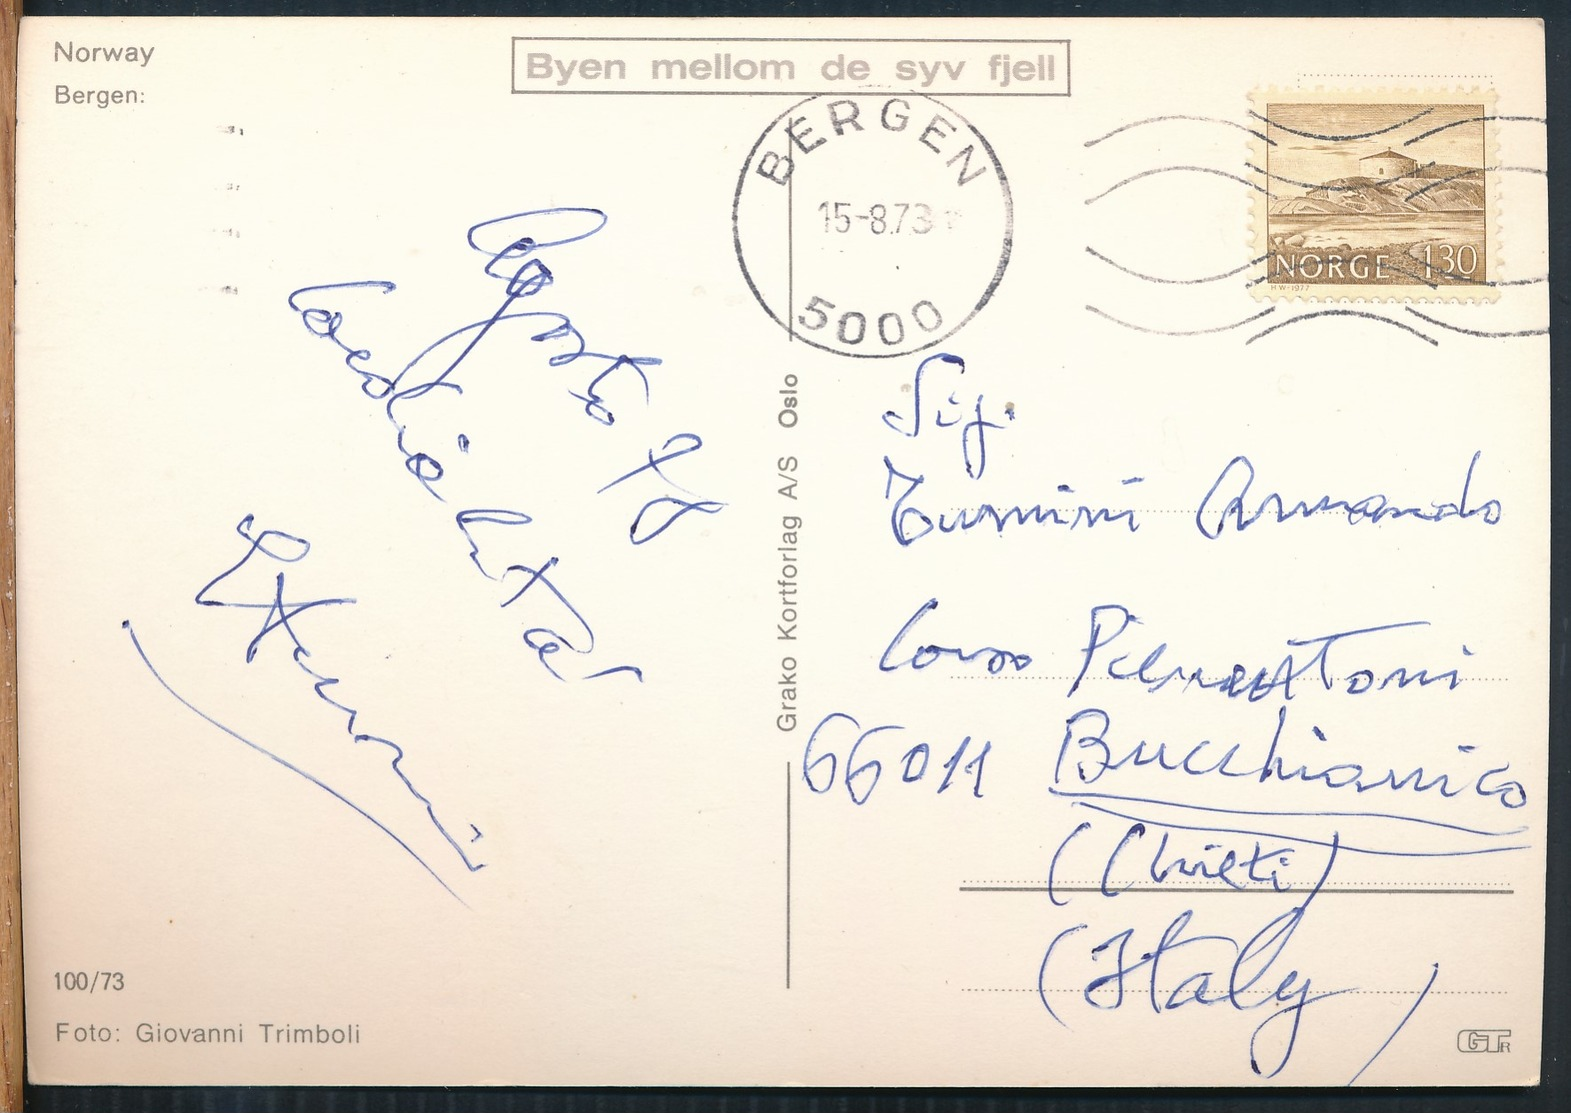 Norway
Bergen:
Byen mellom de syv fjell
BERGEN
15-8.73
5000
NORGE 130
HW-1977
Agosto 78
Cordialità
Sig.
Tumini Armando
Corso Pierantoni
66011 Bucchianico
(Chieti)
(Italy)
Grako Kortforlag A/S Oslo
100/73
Foto: Giovanni Trimboli
GTR